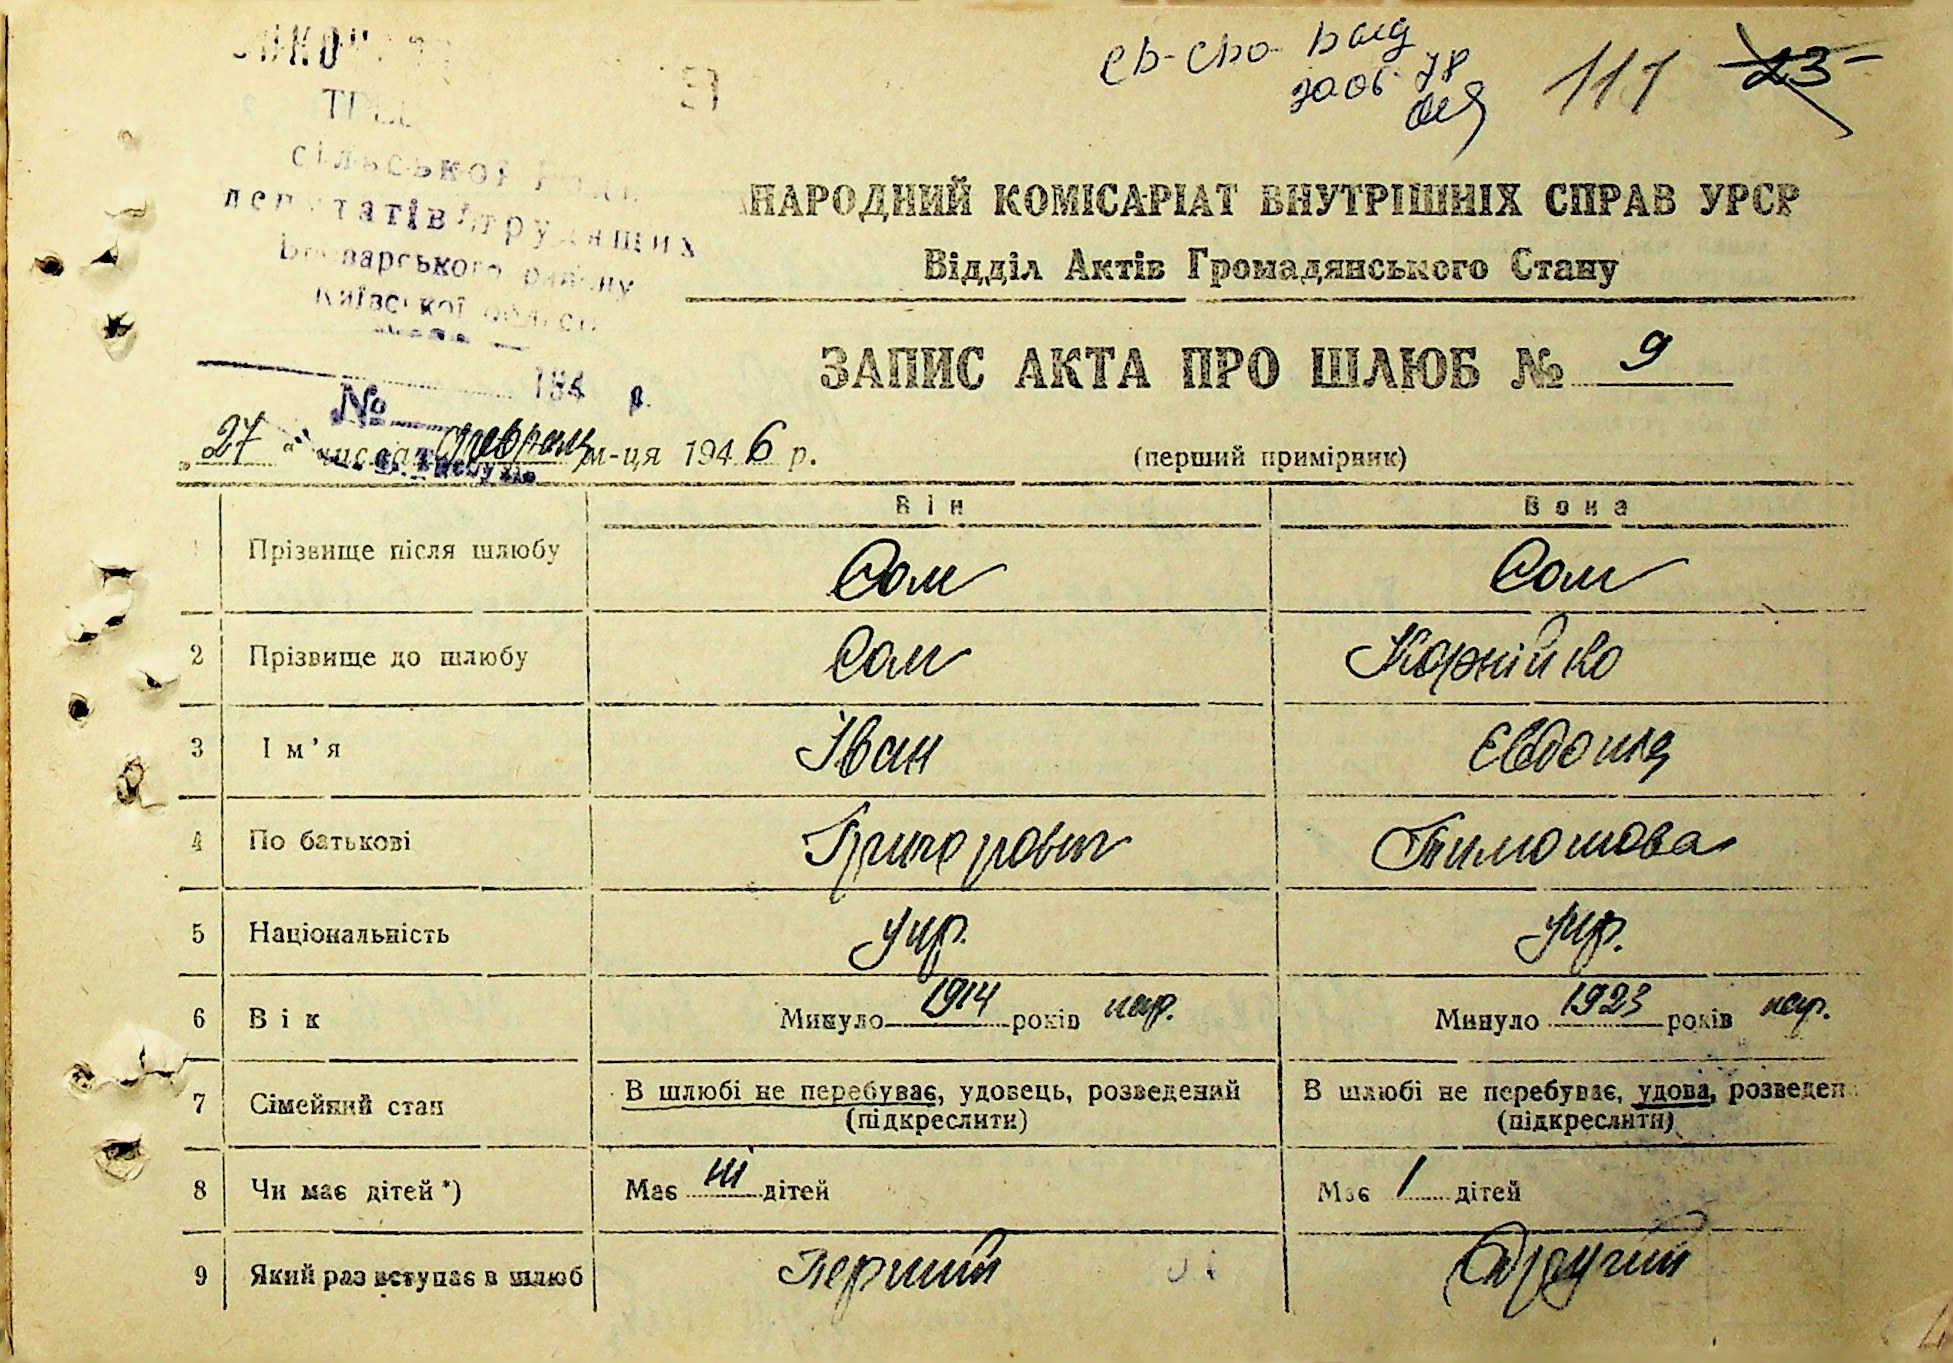 св-сво вид
2006 78
111 23
сільської
депутатів трудящих
Броварського району
Київської області
НАРОДНИЙ КОМІСАРІАТ ВНУТРІШНІХ СПРАВ УРСР
Відділ Актів Громадянського Стану
ЗАПИС АКТА ПРО ШЛЮБ № 9
194 р.
№
„27" числа февраля м-ця 1946 р. (перший примірник)
с. Требухів
Він Вона
1 Прізвище після шлюбу Сом Сом
2 Прізвище до шлюбу Сом Корнійко
3 Ім'я Іван Євдокия
4 По батькові Григорович Тимошова
5 Національність укр. укр.
6 Вік Минуло 1914 років нар. Минуло 1923 років нар.
7 Сімейний стан В шлюбі не перебуває, удовець, розведений В шлюбі не перебуває, удова, розведен
(підкреслити) (підкреслити)
8 Чи має дітей*) Має ні дітей Має 1 дітей
9 Який раз вступає в шлюб Перший Другий